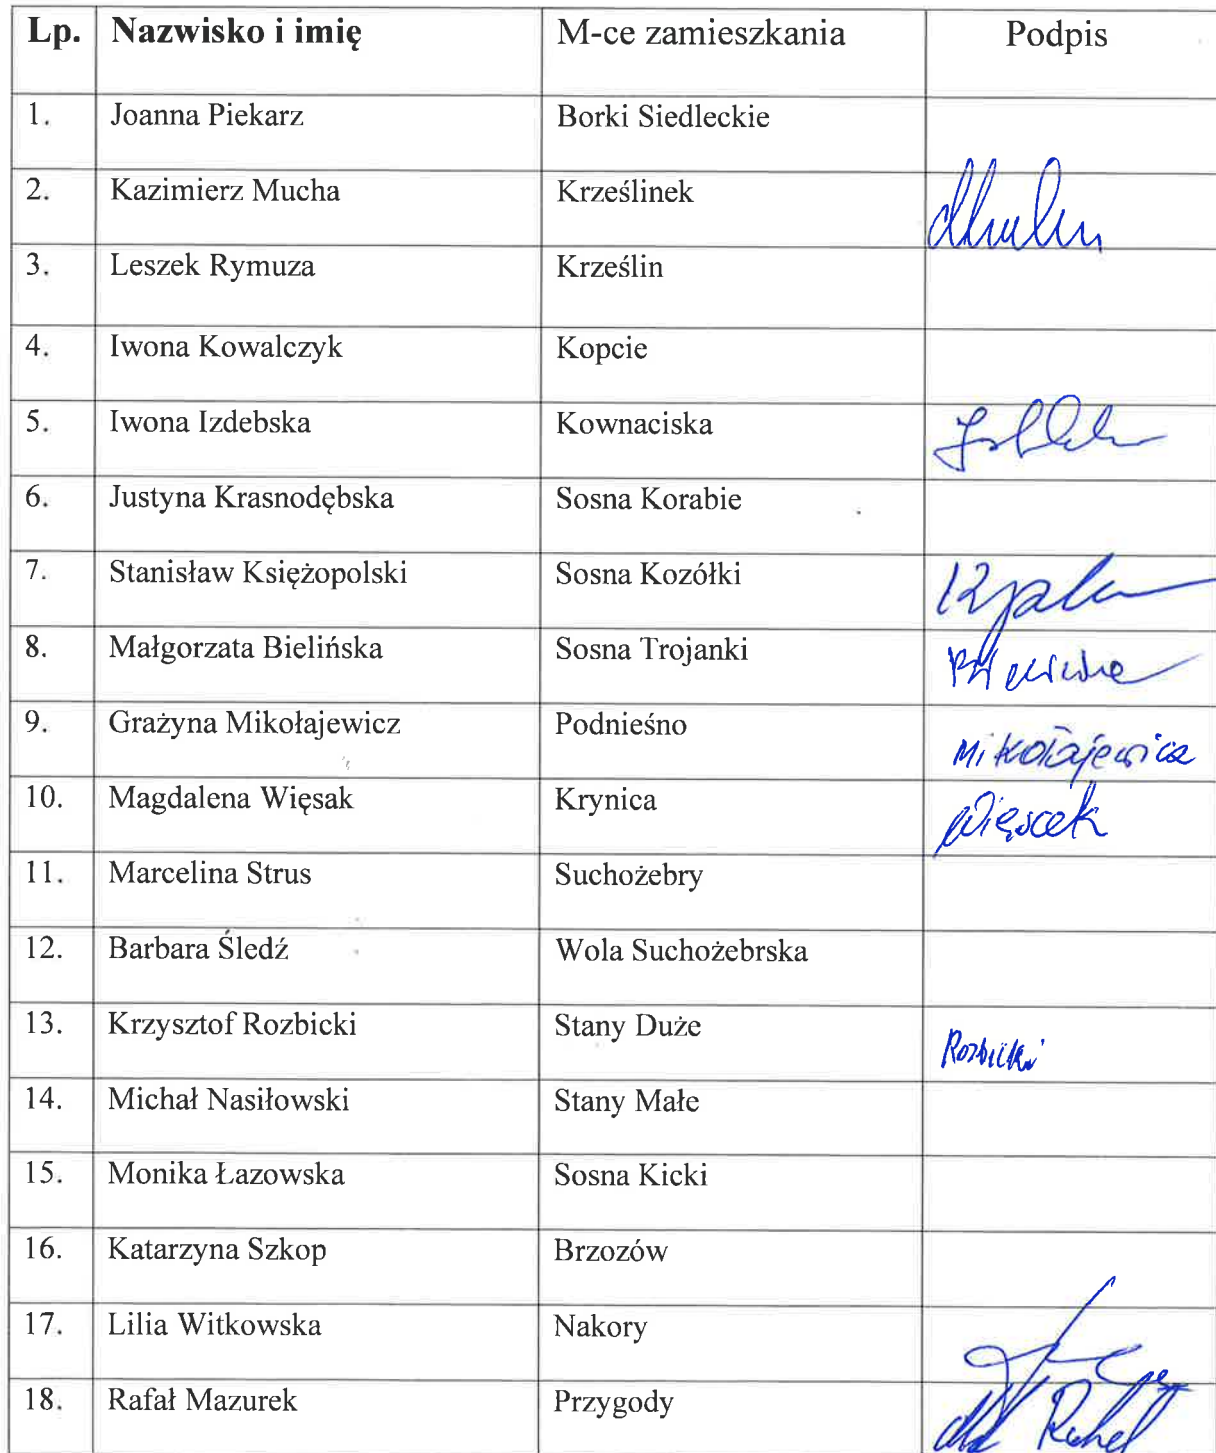 Lp. Nazwisko i imię M-ce zamieszkania Podpis
1. Joanna Piekarz Borki Siedleckie
2. Kazimierz Mucha Krześlinek
3. Leszek Rymuza Krześlin
4. Iwona Kowalczyk Kopcie
5. Iwona Izdebska Kownaciska
6. Justyna Krasnodębska Sosna Korabie
7. Stanisław Księżopolski Sosna Kozółki
8. Małgorzata Bielińska Sosna Trojanki
9. Grażyna Mikołajewicz Podnieśno Mikołajewicz
10. Magdalena Więsak Krynica
11. Marcelina Strus Suchożebry
12. Barbara Śledź Wola Suchożebrska
13. Krzysztof Rozbicki Stany Duże Rozbicki
14. Michał Nasiłowski Stany Małe
15. Monika Łazowska Sosna Kicki
16. Katarzyna Szkop Brzozów
17. Lilia Witkowska Nakory
18. Rafał Mazurek Przygody